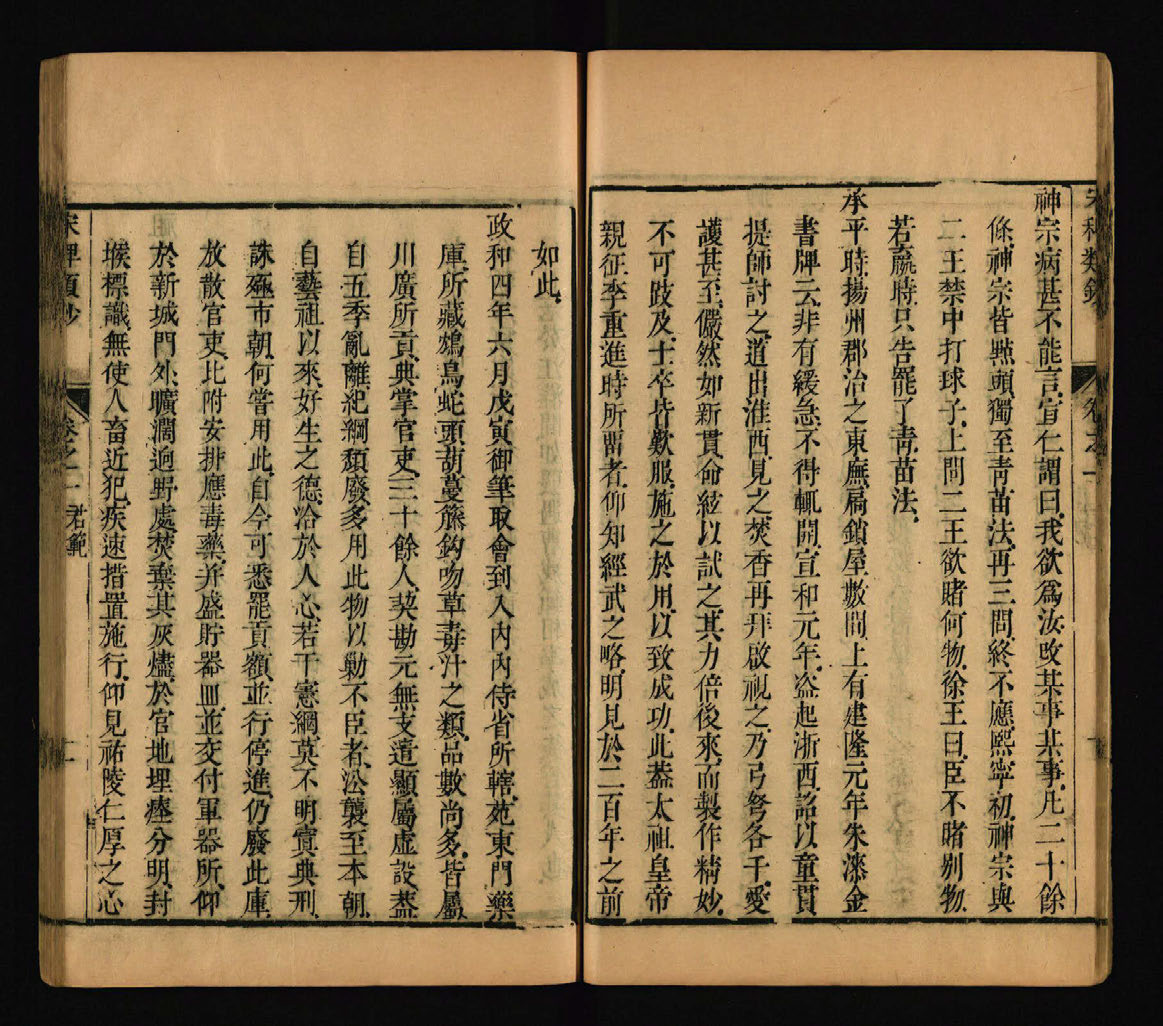 宋稗類鈔 卷之一
神宗病甚不能言宣仁謂曰我欲爲汝改某事某事凡二十餘
條神宗皆㸃頭獨至靑苗法再三問終不應熙寧初神宗與
二王禁中打球子上問二王欲賭何物徐王曰臣不賭别物
若贏時只告罷了靑苗法
承平時揚州郡治之東廡扃鎖屋數間上有建隆元年朱漆金
書牌云非有緩急不得輒開宣和元年盗起浙西詔以童貫
提師討之道出淮西見之焚香再拜啟視之乃弓弩各千愛
護甚至儼然如新貫命絃以試之其力倍後來而製作精妙
不可跂及士卒皆歎服施之於用以致成功此葢太祖皇帝
親征李重進時所畱者仰知經武之略明見於二百年之前
如此
政和四年六月戊寅御筆取會到入內內侍省所轄苑東門藥
庫所藏鴆鳥蛇頭葫蔓籐鈎吻草毒汁之類品數尚多皆屬
川廣所貢典掌官吏三十餘人契勘元無支遣顯屬虛設葢
自五季亂離紀綱頹廢多用此物以勦不臣者沿襲至本朝
自藝祖以來好生之德洽於人心若干憲綱莫不明寘典刑
誅殛市朝何嘗用此自今可悉罷貢額並行停進仍廢此庫
放散官吏比附安排應毒藥并盛貯器皿並交付軍器所仰
於新城門外曠濶逈野處焚棄其灰燼於官地埋瘞分明封
堠標識無使人畜近犯疾速措置施行仰見祐陵仁厚之心
宋稗類鈔 卷之一 君範 二